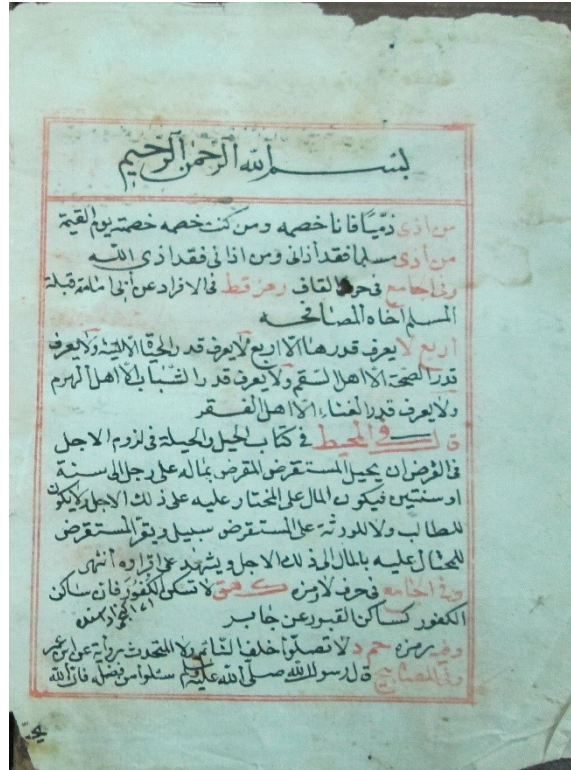 بسم الله الرحمن الرحيم
من اذى ذميا فانا خصمه ومن كنت خصمه خصمته يوم القيمة
من أذى مسلما فقد أذانى ومن اذانى فقد اذى الله
وفى الجامع فى حرف القاف رمز قط فى الافراد عن أبى امامة قبلة
المسلم أخاه المصافحة
اربع لا يعرف قدرها الا اربع لا يعرف قدر الحياة الا الميتة ولا يعرف
قدر الصحة الا اهل السقم ولا يعرف قدر الشباب الا اهل الهرم
ولا يعرف قدر الغناء الا اهل الفقر
قال فى المحيط فى كتاب الحيل والحيلة فى لزوم الاجل
فى القرض ان يحيل المستقرض المقرض بماله على رجل الى سنة
او سنتين فيكون المال على المحتار عليه على ذلك الاجل ولا يكون
للطالب ولا للورثة على المستقرض سبيل ويقر المستقرض
للمحتال عليه بالمال الى ذلك الاجل ويشهد على اقراره أنتهى
وفى الجامع فى حرف لا رمز هق لا تسكن الكفور فان ساكن
الكفور كساكن القبور عن جابر
وفيه برمزه حم د لا تصلوا خلف النائم ولا المتحدث رواية عن ابن عمر
وفى المصابيح قال رسول الله صلى الله عليه وسلم سئلوا من فضله فان الله